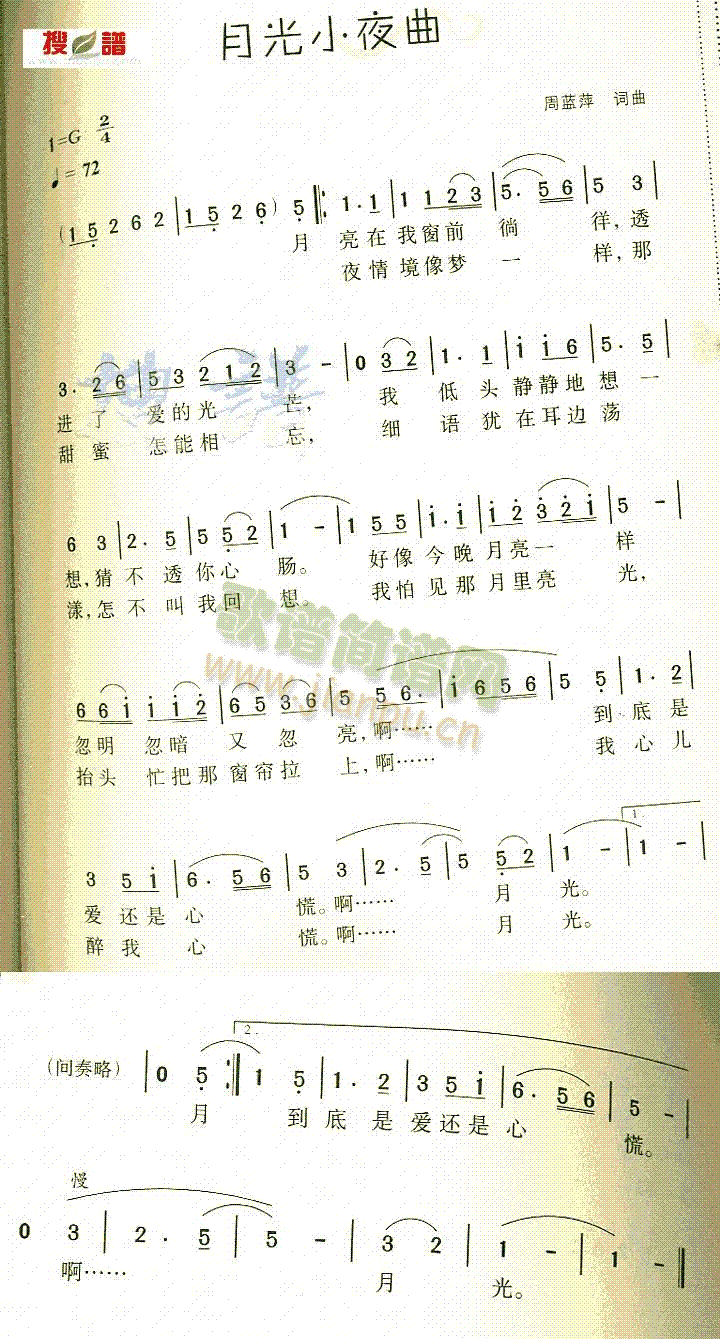 搜谱
月光小夜曲
周蓝萍 词曲
1=G 2/4
♩= 72
(1 5 2 6 2 | 1 5 2 6) 5 ‖: 1 . 1 | 1 1 2 3 | 5 . 5 6 | 5 3 |
月 亮在我窗前 徜 徉,透
夜情境像梦 一 样,那
3 . 2 6 | 5 3 2 1 2 | 3 - | 0 3 2 | 1 . 1 | i i 6 | 5 . 5 |
进了 爱的光 芒, 我 低头静静地想一
甜蜜 怎能相 忘, 细 语犹在耳边荡
6 3 | 2 . 5 | 5 5 2 | 1 - | 1 5 5 | i . i | i 2 3 2 i | 5 - |
想,猜不透你心 肠。 好像今晚月亮一 样
漾,怎不叫我回 想。 我怕见那月里亮 光,
6 6 i | i i 2 | 6 5 3 6 | 5 5 6 . | i 6 5 6 | 5 5 | 1 . 2 |
忽明 忽暗 又 忽 亮,啊…… 到底是
抬头 忙把那窗帘拉 上,啊…… 我心儿
歌谱简谱网
www.jianpu.cn
3 5 i | 6 . 5 6 | 5 3 | 2 . 5 | 5 5 2 | 1 - | 1 - |
1.
爱还是心 慌。啊…… 月 光。
醉我心 慌。啊…… 月 光。
2.
(间奏略) | 0 5 :‖ 1 5 | 1 . 2 | 3 5 i | 6 . 5 6 | 5 - |
月 到底是爱还是心 慌。
慢
0 3 | 2 . 5 | 5 - | 3 2 | 1 - | 1 - ‖
啊…… 月 光。